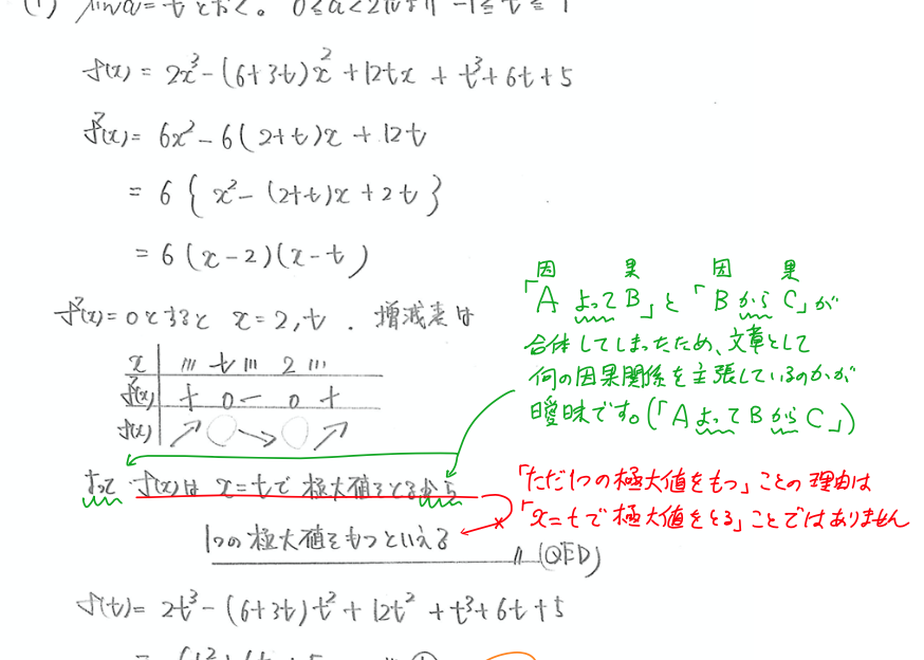 (1) sinα = t とおく。 0≦α<2πより -1≦t≦1
f(x) = 2x³-(6+3t)x²+12tx + t³+6t+5
f'(x) = 6x²-6(2+t)x+12t
= 6{x²-(2+t)x+2t}
= 6(x-2)(x-t)
f'(x)=0とすると x=2,t . 増減表は
x … t … 2 …
f'(x) + 0 - 0 +
f(x) ↗ ↘ ↗
よって f(x)は x=tで 極大値をとるから
1つの極大値をもつといえる
〃 (QED)
f(t) = 2t³-(6+3t)t²+12t² + t³+6t+5
因 果 因 果
「A よって B」と「B から C」が
合体してしまったため、文章として
何の因果関係を主張しているのかが
曖昧です。(「A よって B から C」)
「ただ1つの極大値をもつ」ことの理由は
「x=tで極大値をとる」ことではありません